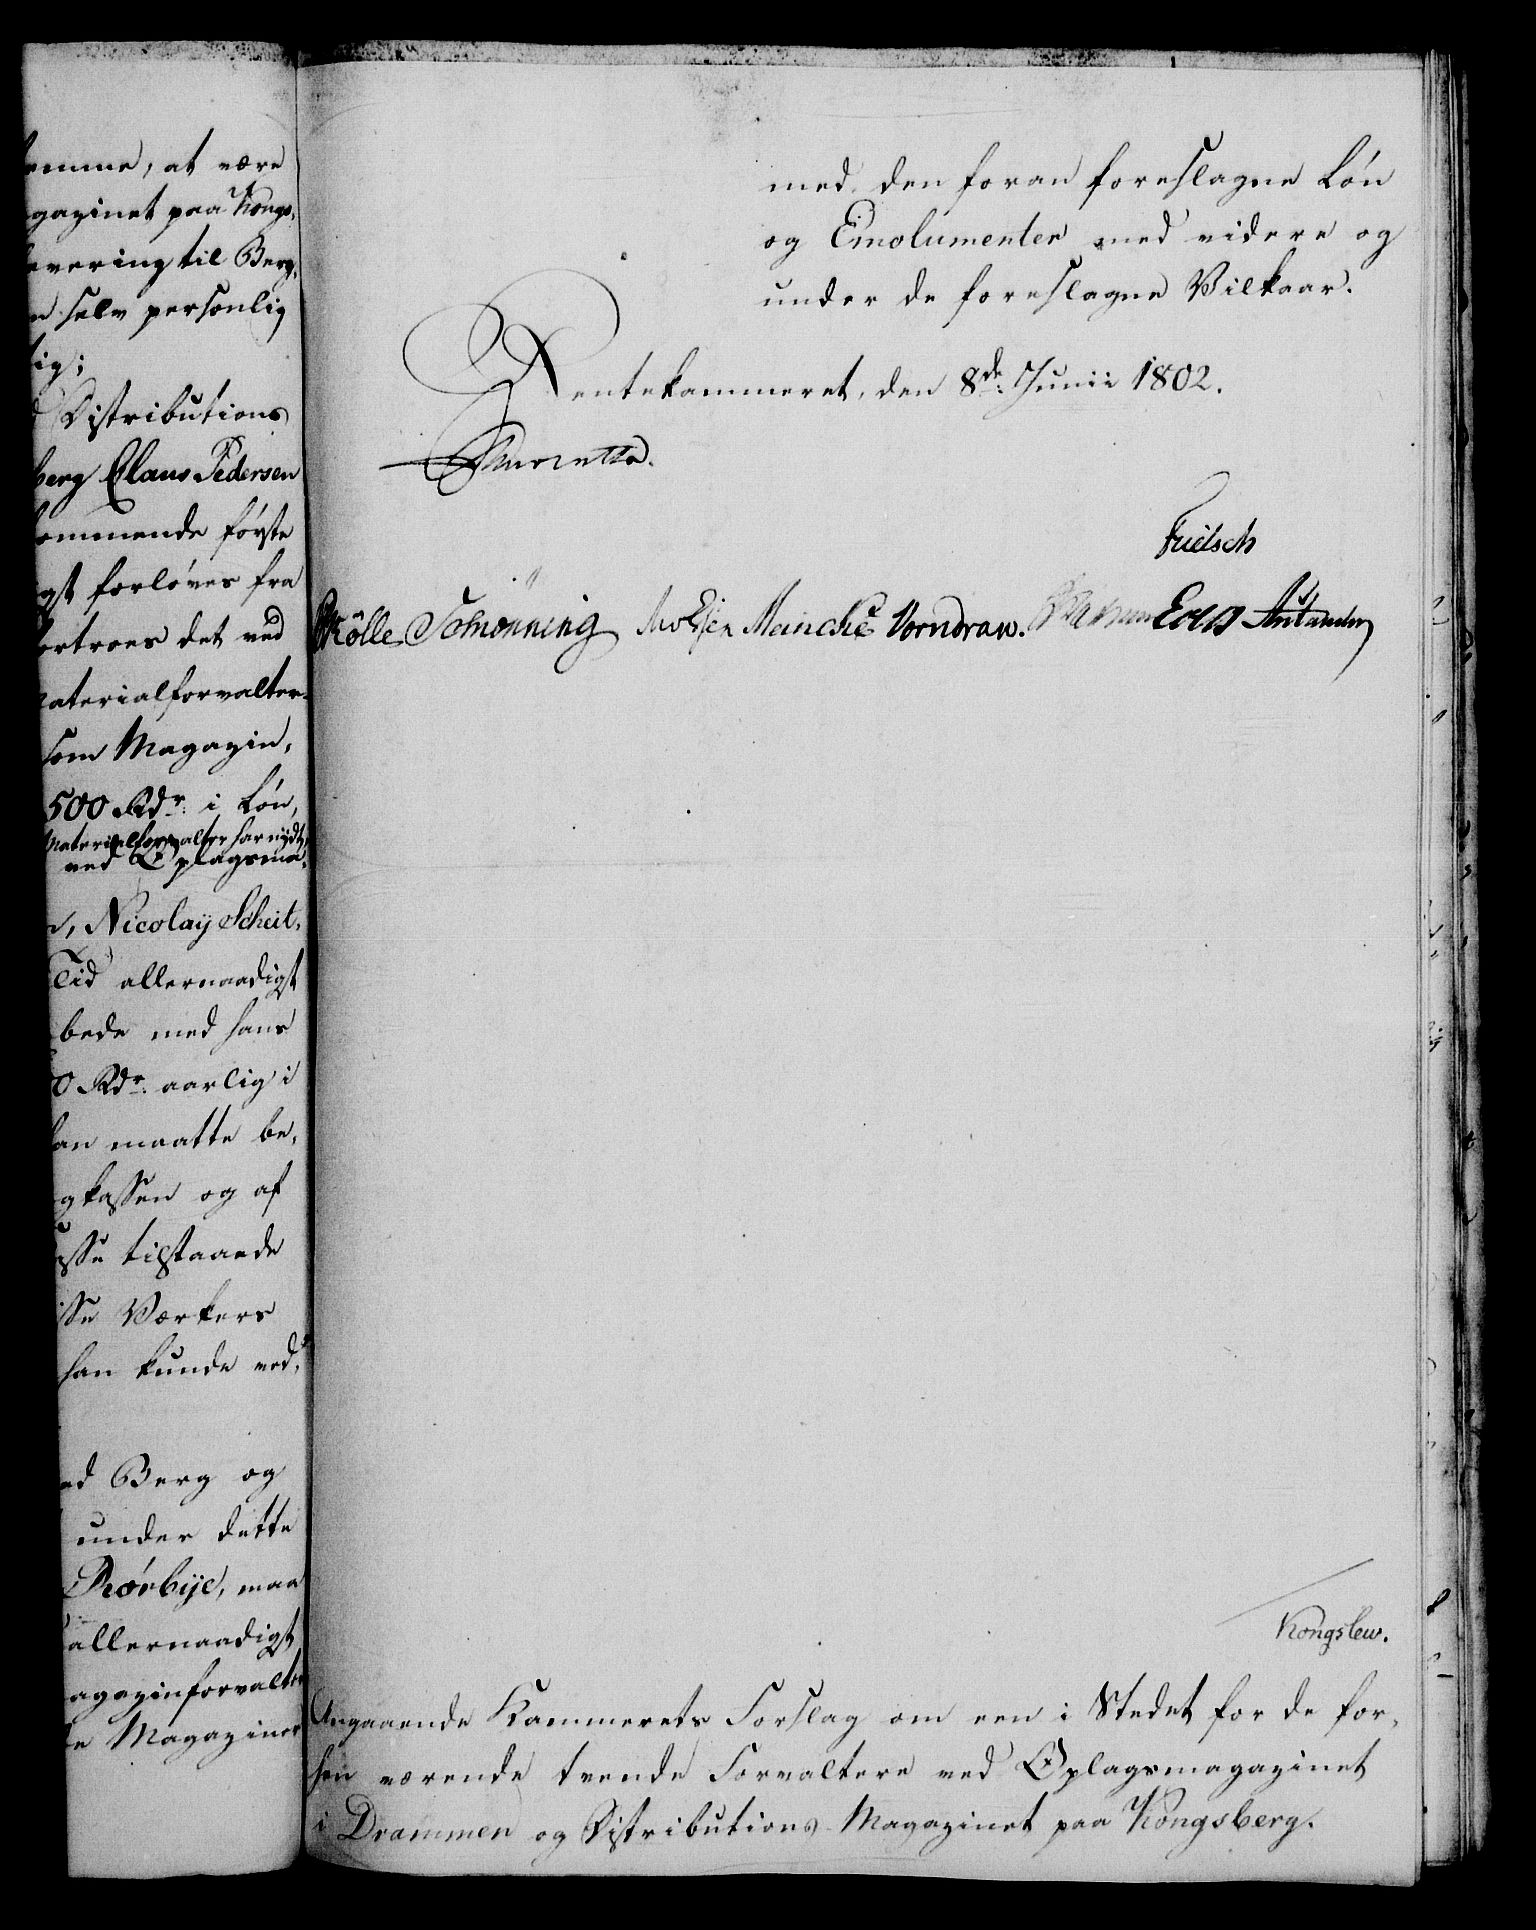 emme, at være
gazinet paa Kongs,
evering til Berg,
selv personlig
tig;
Distributions
berg Claus Pedersen
kommende første
gst forløves fra
ortroes det ved
aterialforvalter,
som Magazin,
500 Rdr. i Løn,
Materialforvalter har nydt,
ved Oplagsma,
, Nicolaÿ Scheit,
Tid allernaadigst
bede med hans
0 Rdr. aarlig i
han maatte be,
gkassen og af
sse tilstaaede
isse Værkers
han kunde ved,
ed Berg og
under dette
Rörbÿe, maa
allernaadigst
agazinforvalter
e Magaziner
med den foran foreslagne Løn
og Emolumenter med videre og
under de foreslagne Vilkaar.
Rentekammeret, den 8de Junii 1802.
Reventlow.
Frielsch
Kölle Schönning Meinche Vorndran.
Kongslew.
Angaaende Kammerets Forslag om een i Stedet for de for,
hen værende tvende Forvaltere ved Oplagsmagazinet
i Drammen og Distributions Magazinet paa Kongsberg.